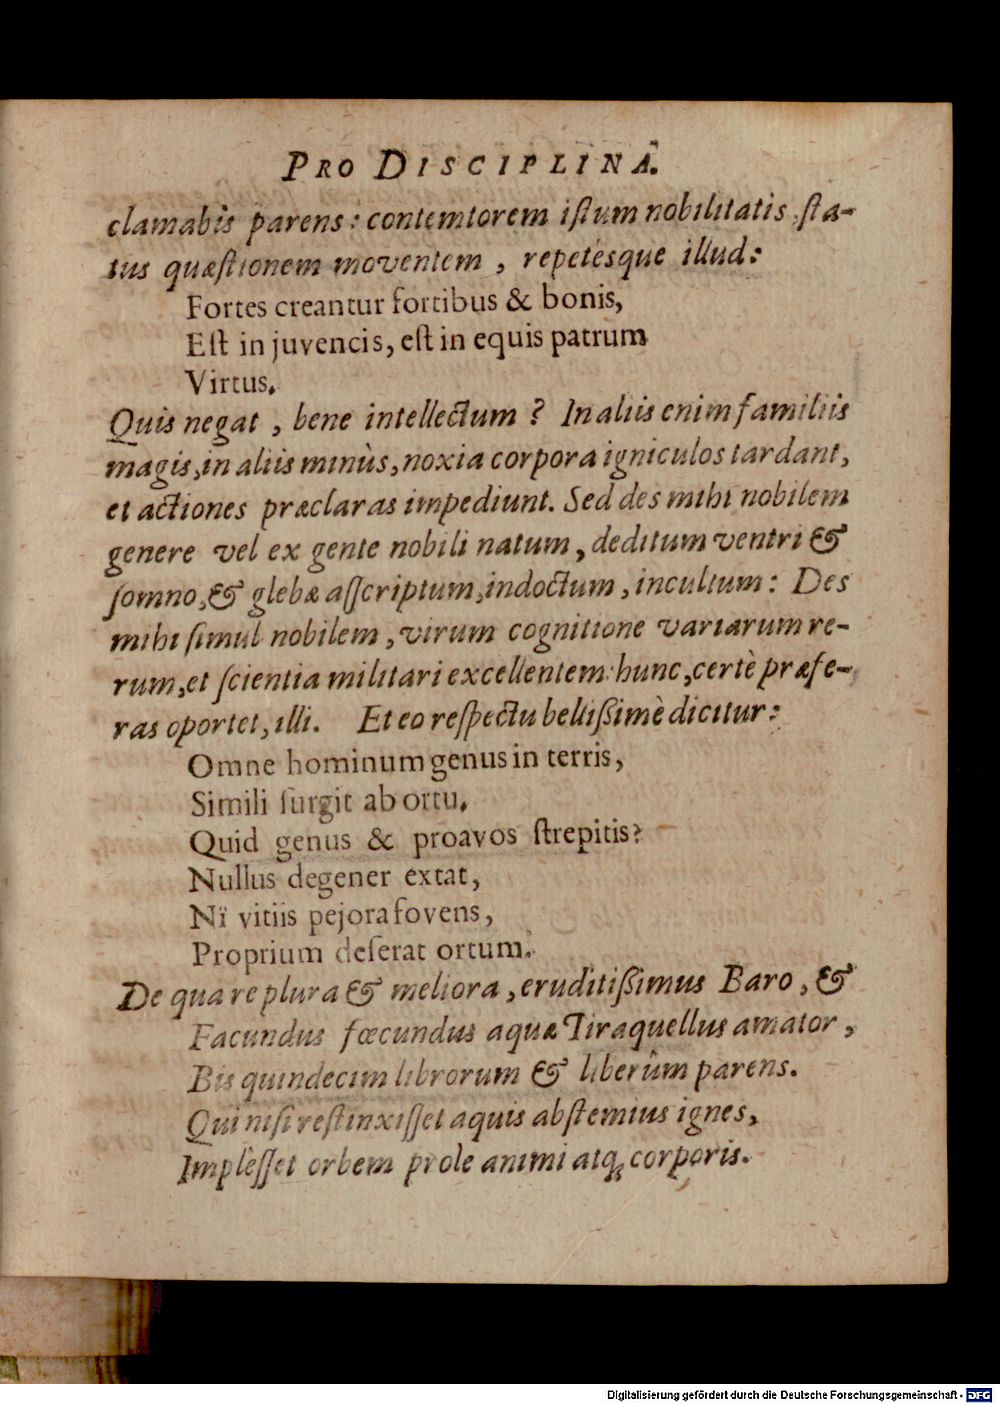 PRO DISCIPLINÂ.
clamabis parens: contemtorem iſtum nobilitatis ſta-
tus quæſtionem moventem, repetesque illud:
Fortes creantur fortibus & bonis,
Eſt in juvencis, eſt in equis patrum
Virtus.
Quis negat, bene intellectum? In aliis enim familiis
magis, in aliis minùs, noxia corpora igniculos tardant,
et actiones præclaras impediunt. Sed des mihi nobilem
genere vel ex gente nobili natum, deditum ventri &
ſomno, & glebæ aſſcriptum, indoctum, incultum: Des
mihi ſimul nobilem, virum cognitione variarum re-
rum, et ſcientia militari excellentem: hunc, certè præfe-
ras oportet, illi. Et eo reſpectu belliſſimè dicitur:
Omne hominum genus in terris,
Simili ſurgit ab ortu.
Quid genus & proavos ſtrepitis?
Nullus degener extat,
Nï vitiis pejora fovens,
Proprium deſerat ortum.
De qua re plura & meliora, eruditiſſimus Baro, &
Facundus fœcundus aquæ Tiraquellus amator,
Bis quindecim librorum & liberûm parens.
Qui niſi reſtinxiſſet aquis abſtemius ignes,
Impleſſet orbem prole animi atq; corporis.
Digitalisierung gefördert durch die Deutsche Forschungsgemeinschaft - DFG